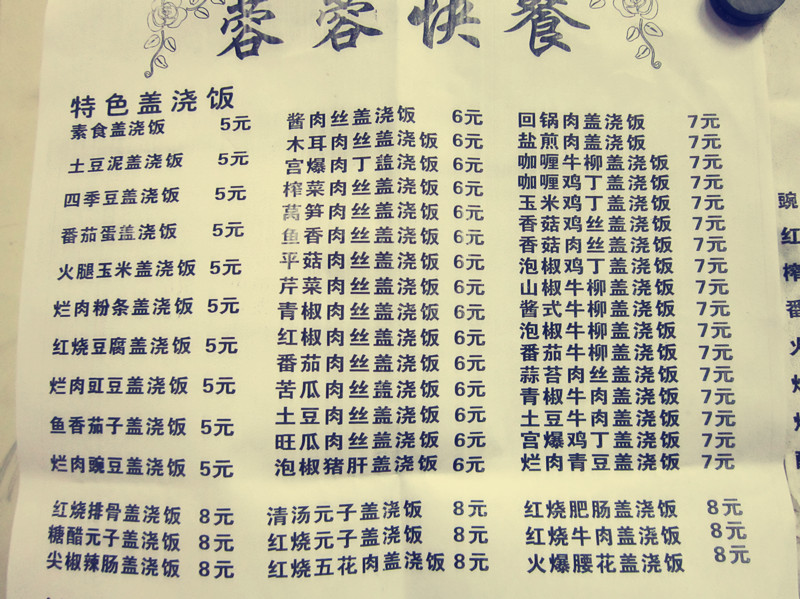 蓉蓉快餐
特色盖浇饭
素食盖浇饭 5元
土豆泥盖浇饭 5元
四季豆盖浇饭 5元
番茄蛋盖浇饭 5元
火腿玉米盖浇饭 5元
烂肉粉条盖浇饭 5元
红烧豆腐盖浇饭 5元
烂肉豇豆盖浇饭 5元
鱼香茄子盖浇饭 5元
烂肉豌豆盖浇饭 5元
酱肉丝盖浇饭 6元
木耳肉丝盖浇饭 6元
宫爆肉丁盖浇饭 6元
榨菜肉丝盖浇饭 6元
莴笋肉丝盖浇饭 6元
鱼香肉丝盖浇饭 6元
平菇肉丝盖浇饭 6元
芹菜肉丝盖浇饭 6元
青椒肉丝盖浇饭 6元
红椒肉丝盖浇饭 6元
番茄肉丝盖浇饭 6元
苦瓜肉丝盖浇饭 6元
土豆肉丝盖浇饭 6元
旺瓜肉丝盖浇饭 6元
泡椒猪肝盖浇饭 6元
回锅肉盖浇饭 7元
盐煎肉盖浇饭 7元
咖喱牛柳盖浇饭 7元
咖喱鸡丁盖浇饭 7元
玉米鸡丁盖浇饭 7元
香菇鸡丝盖浇饭 7元
香菇肉丝盖浇饭 7元
泡椒鸡丁盖浇饭 7元
山椒牛柳盖浇饭 7元
酱式牛柳盖浇饭 7元
泡椒牛柳盖浇饭 7元
番茄牛柳盖浇饭 7元
蒜苔肉丝盖浇饭 7元
青椒牛肉盖浇饭 7元
土豆牛肉盖浇饭 7元
宫爆鸡丁盖浇饭 7元
烂肉青豆盖浇饭 7元
红烧排骨盖浇饭 8元
糖醋元子盖浇饭 8元
尖椒辣肠盖浇饭 8元
清汤元子盖浇饭 8元
红烧元子盖浇饭 8元
红烧五花肉盖浇饭 8元
红烧肥肠盖浇饭 8元
红烧牛肉盖浇饭 8元
火爆腰花盖浇饭 8元
豌
红
榨
番
火